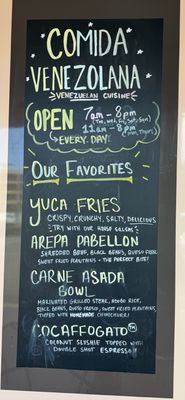 COMIDA
VENEZOLANA
VENEZUELAN CUISINE
OPEN 7am - 8pm
(Tue, Wed, Fri, Sat, Sun)
11am - 8pm
(Mon, Thurs)
EVERY DAY
OUR FAVORITES
YUCA FRIES
CRISPY, CRUNCHY, SALTY, DELICIOUS
TRY WITH OUR HOUSE
AREPA PABELLON
SHREDDED BEEF, BLACK BEANS, QUESO FRESCO
SWEET FRIED PLANTAINS - THE PERFECT BITE!
CARNE ASADA
BOWL
MARINATED GRILLED STEAK, ADOBO RICE,
BLACK BEANS, QUESO FRESCO, SWEET FRIED PLANTAINS,
TOPPED WITH HOMEMADE CHIMICHURRI
COCAFFOGATO™
COCONUT SLUSHIE TOPPED WITH
DOUBLE SHOT ESPRESSO!!